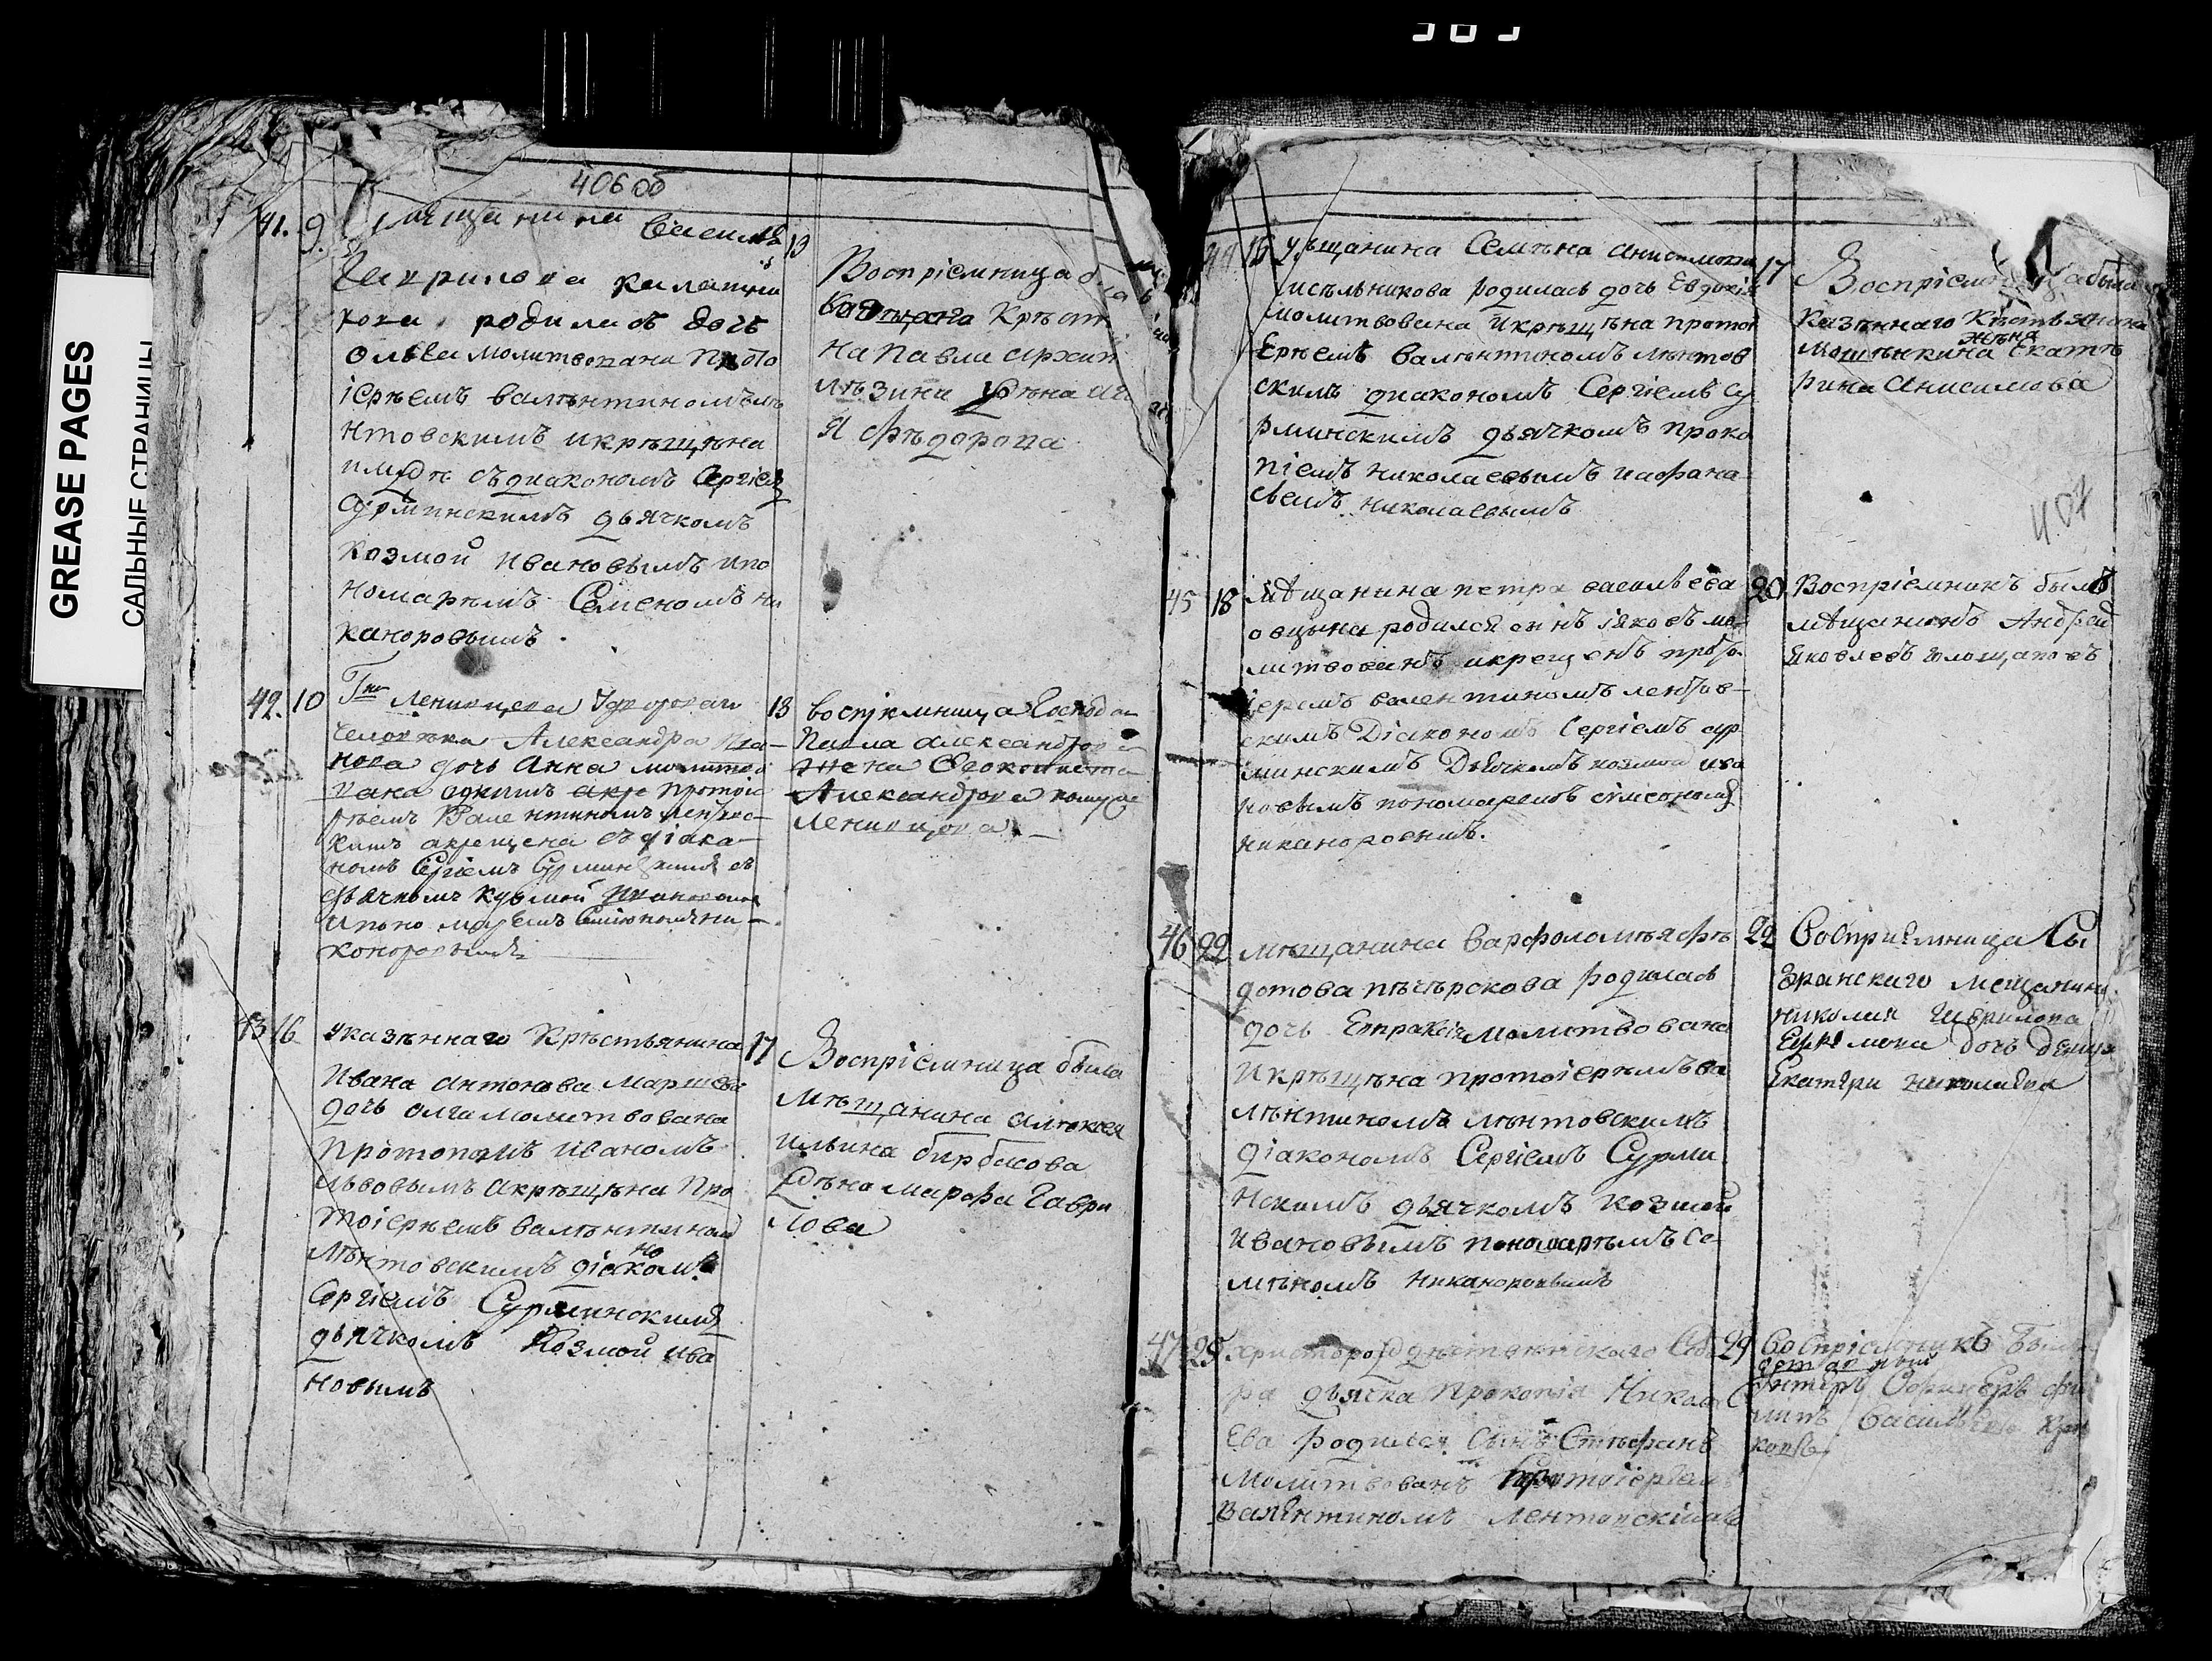 GREASE PAGES
САЛЬНЫЕ СТРАНИЦЫ
406 об
41. 9. мещанина Василья
Гаврилова калашни
кова родилась дочь
Ольга молитвована прото
іерѣемъ валѣнтиномъ лѣ
нтовскимъ икрѣщѣна
имже съ диакономъ Сергіемъ
Сурминскимъ дьячкомъ
Козмой Ивановымъ ипо
номарѣмъ Семеномъ ни
каноровымъ
13
Воспріемница
Крѣстья
на Павла
жѣна
я Фѣдорова
42. 10 Гна
Человѣка Александра
нова дочь Анна молитво
вана протоіе
рѣемъ Валентиномъ лентовс
кимъ акрещена съ діако
номъ Сергіемъ Сурминскимъ съ
дьячкомъ Кузмой Ивановымъ
ипономарѣмъ Симіономъ ни
коноровымъ
13 воспріемница Господи
Павла Александрова
жена
Александрова
43 16 указѣннаго Крѣстьянина
Ивана Антонова
дочь олга молитвована
протопопомъ Иваномъ
львовымъ акрѣщѣна Про
тоіерѣемъ валѣнтиномъ
Лѣнтовскимъ діакономъ
Сергіемъ Сурминскимъ
дьячкомъ Козмой Ива
новымъ
17 Воспріемница была
Мѣщанина алѣксея
ильина бирбасова
жѣна марфа Гаври
лова
44 16 уМѣщанина Семѣна анисимова
мѣльникова родилась дочь Евдокія
молитвована икрѣщѣна протоі
Ерѣемъ валѣнтиномъ лѣнтов
скимъ диакономъ Сергіемъ Су
рминскимъ дьячкомъ проко
піемъ николаевымъ иафана
сьемъ николаевымъ
17 Воспріемница была
Казѣннаго Крѣстьянина
жѣна
Мошѣнкина Екатѣ
рина анисимова
407
45 18 мѣщанина петра васильева
овцына родился сынъ іяковъ мо
литвованъ икрещенъ прото
іеремъ валентиномъ лентов
скимъ Діакономъ Сергіемъ сур
минскимъ Дьячкомъ козмой ива
новымъ пономаремъ симеономъ
никаноровимъ.
20. Воспріемникъ былъ
мѣщанинъ Андрей
Яковлевъ
46 22 мѣщанина Варфоломѣя фѣ
дотова пѣчѣрскова родилась
дочь Епраксія молитвована
Икрѣщѣна протоіерѣмъ ва
лѣнтиномъ лѣнтовскимъ
діакономъ Сергіемъ Сурми
нскимъ дьячкомъ козмой
ивановымъ пономарѣмъ Се
мѣномъ никаноровымъ
22 Восприемница Сы
зранскаго мещанина
николая Гаврилова
дочь девица
Екатери николаева
47 25 Христорождѣствѣнскаго Собо
ра дьячка Прокопія Никола
Ева родился Сынъ Стѣфанъ
Молитвованъ протоіереемъ
Валентиномъ лентовскимъ
29 Воспріемникъ былъ
Унтеръ Офицеръ фи
липъ Васильевъ